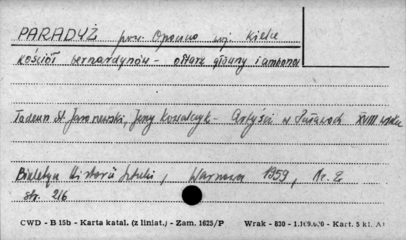 PARADYŻ pow. Opoczno woj. Kielce
kościół bernardynów - ołtarz główny i ambona
Tadeusz St. Jaroszewski, Jerzy Kowalczyk - Artyści w Puławach XVIII wieku
Biuletyn Historii Sztuki, Warszawa 1959, Nr. 2
str. 216
CWD - B 15b - Karta katal. (z liniat.) - Zam. 1625/P Wrak - 830 - Kart. 5 kl.